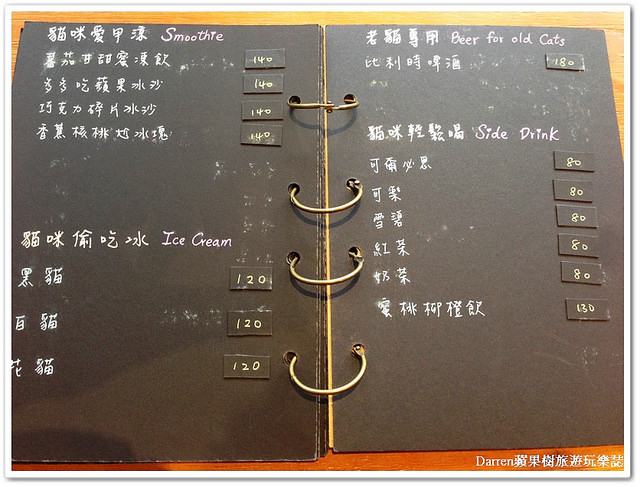 貓咪愛甲凍 Smoothie
蕃茄甘甜蜜凍飲 140
多多吃蘋果冰沙 140
巧克力碎片冰沙 140
香蕉核桃冰 140
貓咪偷吃冰 Ice Cream
黑貓 120
白貓 120
花貓 120
老貓專用 Beer for old Cats
比利時啤酒 180
貓咪輕鬆喝 Side Drink
可爾必思 80
可樂 80
雪碧 80
紅茶 80
奶茶 80
蜜桃柳橙飲 130
Darren蘋果樹旅遊玩樂誌